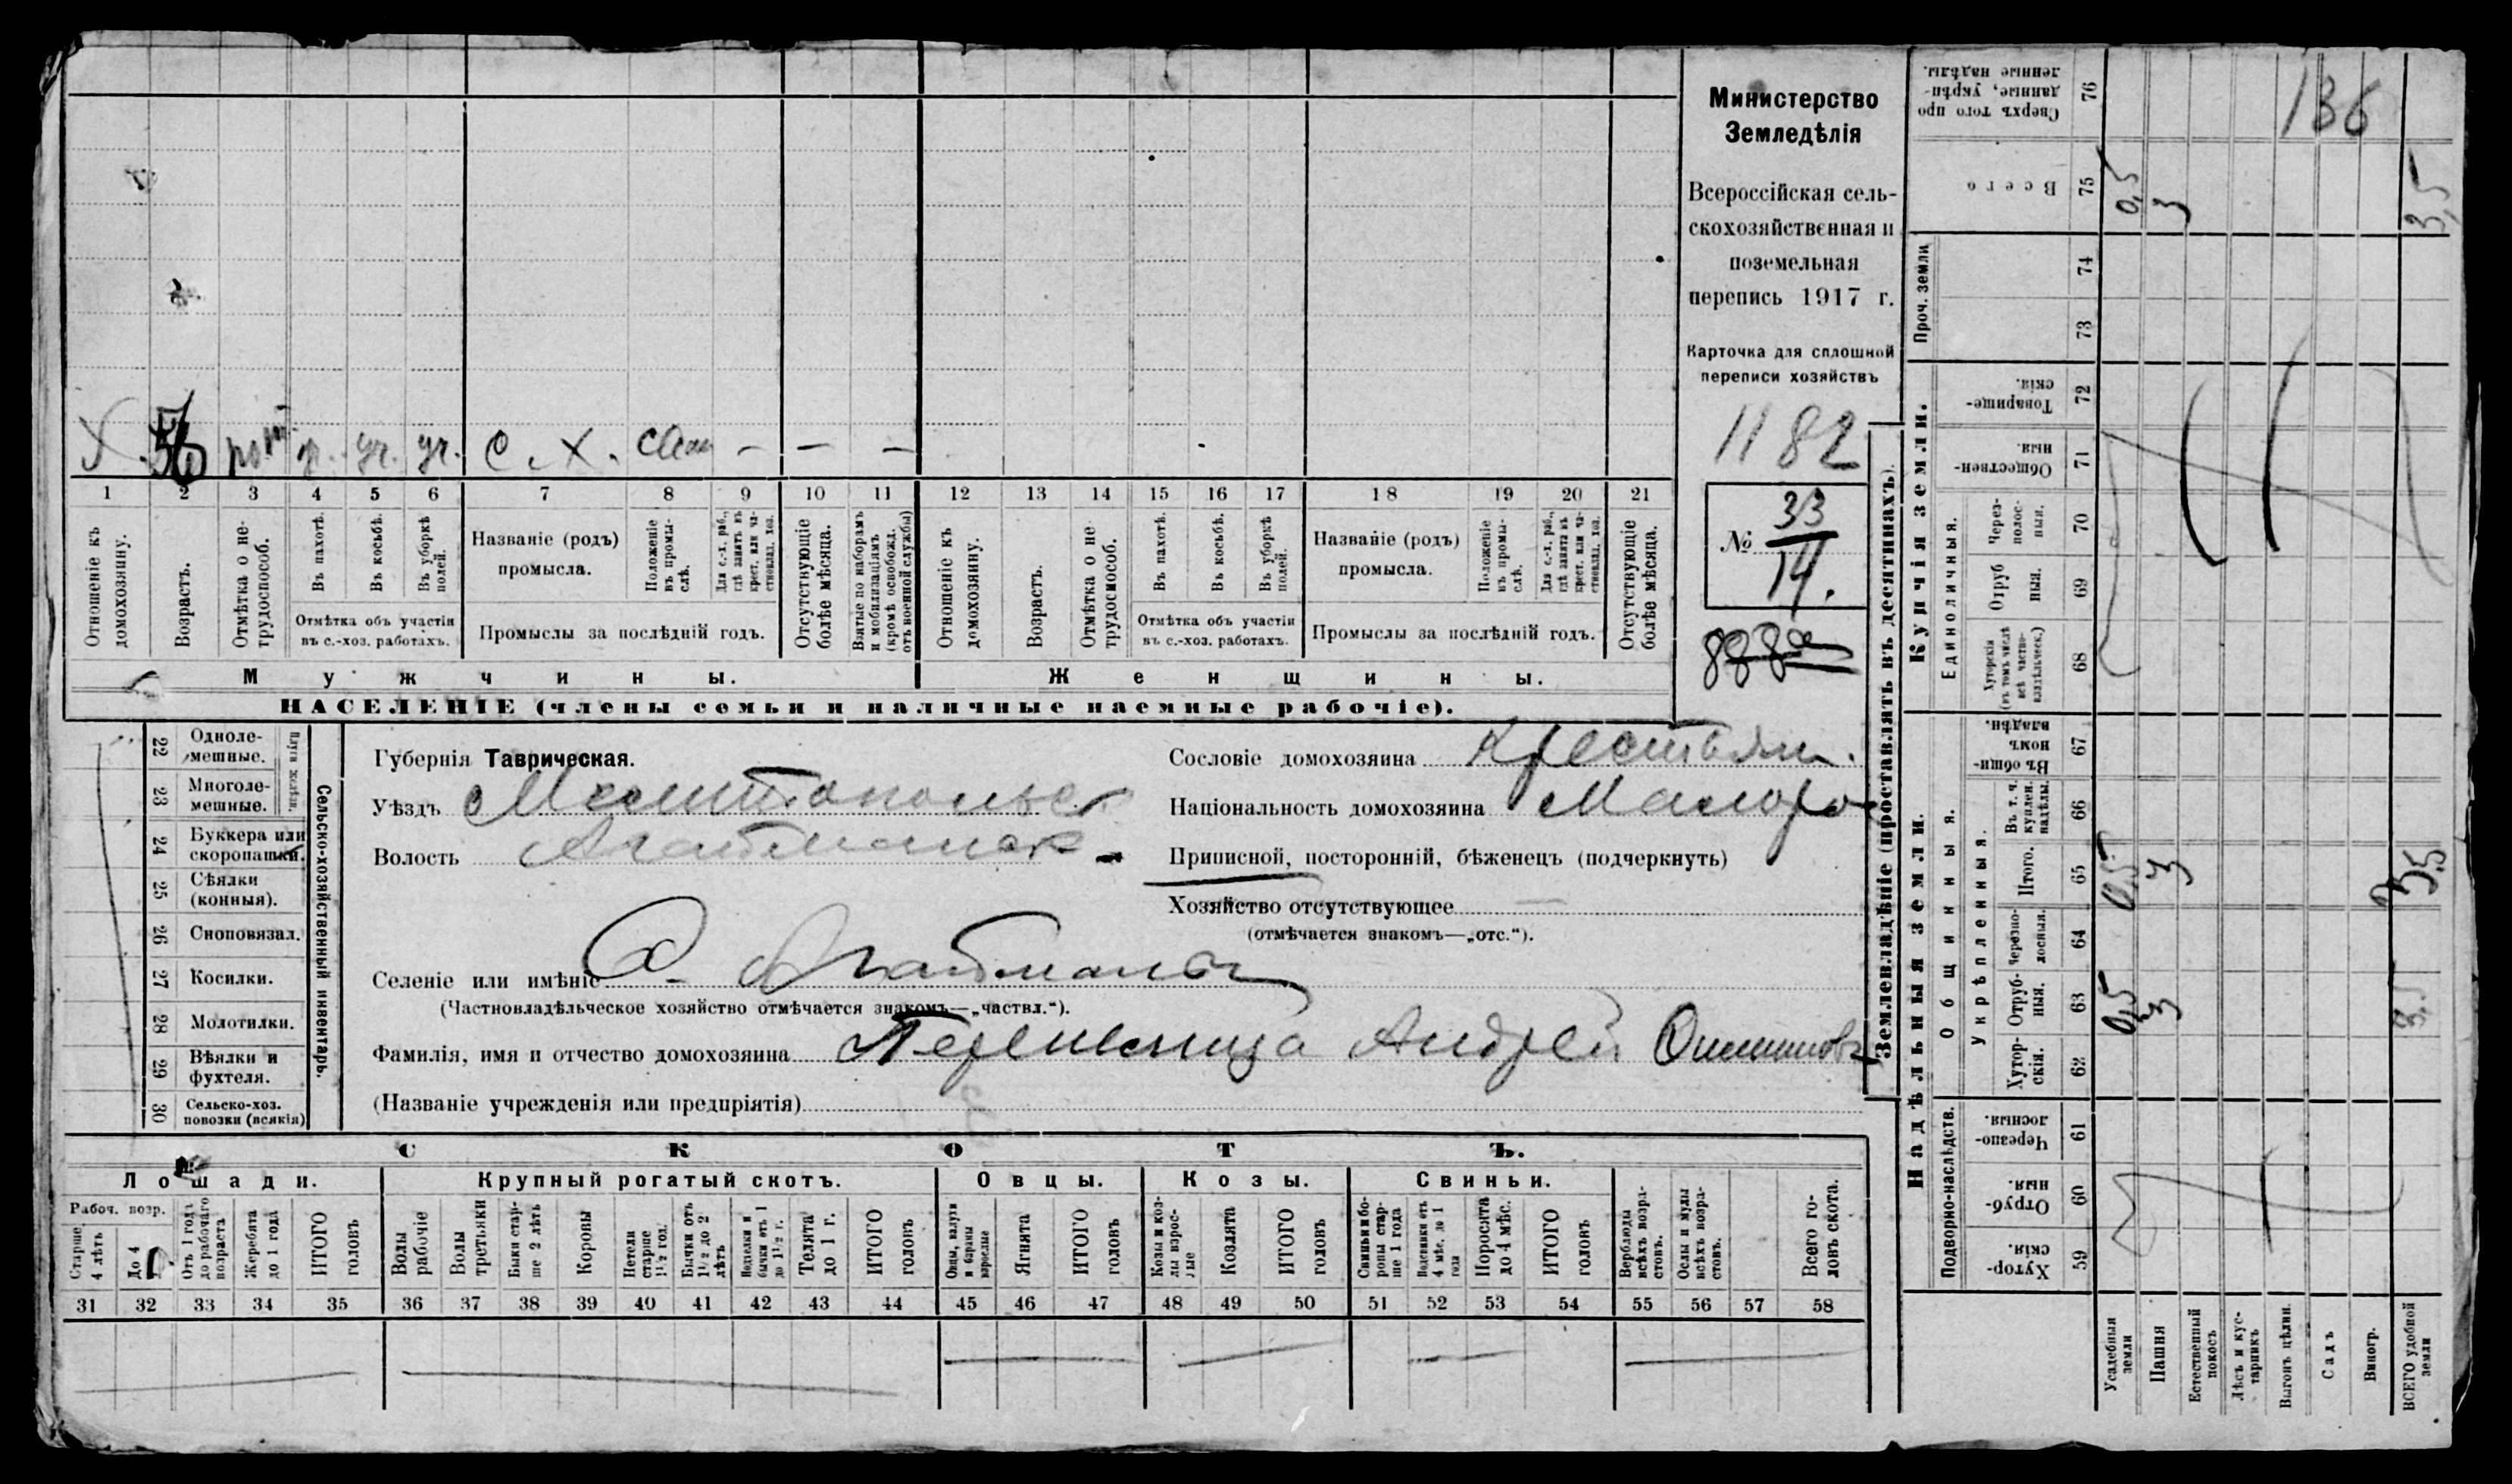 Министерство
Земледѣлія
Всероссійская сель-
скохозяйственная и
поземельная
перепись 1917 г.
Карточка для сплошной
переписи хозяйствъ
1182
№ 33
14.
х. 56 уч. уч. С. Х. сам - - -
1 2 3 4 5 6 7 8 9 10 11 12 13 14 15 16 17 18 19 20 21
Отношеніе къ домохозяину.
Возрастъ.
Отмѣтка о не-трудоспособ.
Въ пахотѣ.
Въ косьбѣ.
Въ уборкѣ полей.
Отмѣтка объ участіи
въ с.-хоз. работахъ.
Названіе (родъ)
промысла.
Положеніе въ промы-слѣ.
Для с.-х. раб., гдѣ занятъ въ крест. или ча-стновлад. хоз.
Промыслы за послѣдній годъ.
Отсутствующіе болѣе мѣсяца.
Взятые по наборамъ и мобилизаціямъ (кромѣ освобожд. отъ военной службы)
Отношеніе къ домохозяину.
Возрастъ.
Отмѣтка о не-трудоспособ.
Въ пахотѣ.
Въ косьбѣ.
Въ уборкѣ полей.
Отмѣтка объ участіи
въ с.-хоз. работахъ.
Названіе (родъ)
промысла.
Положеніе въ промы-слѣ.
Для с.-х. раб., гдѣ занята въ крест. или ча-стновлад. хоз.
Промыслы за послѣдній годъ.
Отсутствующіе болѣе мѣсяца.
Мужчины.
Женщины.
НАСЕЛЕНІЕ (члены семьи и наличные наемные рабочіе).
Сельско-хозяйственный инвентарь.
Плуги желѣзн.
22 Одноле-мешные.
23 Многоле-мешные.
24 Буккера или скоропашки.
25 Сѣялки (конныя).
26 Сноповязал.
27 Косилки.
28 Молотилки.
29 Вѣялки и фухтеля.
30 Сельско-хоз. повозки (всякія)
Губернія Таврическая.
Уѣздъ Мелитопольск
Волость Агайманск
Селеніе или имѣніе С. Агайманы
(Частновладѣльческое хозяйство отмѣчается знакомъ—„частвл.“).
Фамилія, имя и отчество домохозяина Андрей
(Названіе учрежденія или предпріятія)
Сословіе домохозяина Крестьян.
Національность домохозяина Малоро
Приписной, посторонній, бѣженецъ (подчеркнуть)
Хозяйство отсутствующее —
(отмѣчается знакомъ—„отс.“).
СКОТЪ.
Лошади.
Крупный рогатый скотъ.
Овцы.
Козы.
Свиньи.
Рабоч. возр.
Старше 4 лѣтъ
До 4
Отъ 1 года до рабочаго возраста
Жеребята до 1 года
ИТОГО головъ
Волы рабочіе
Волы третьяки
Быки стар-ше 2 лѣтъ
Коровы
Нетели старше 1½ год.
Бычки отъ 1½ до 2 лѣтъ
Телята до 1 г.
ИТОГО головъ
Овцы, валухи и бараны взрослые
Ягнята
ИТОГО головъ
Козы и коз-лы взрос-лые
Козлята
ИТОГО головъ
Свиньи и бо-ровы стар-ше 1 года
Подсвинки отъ 4 мѣс. до 1 года
Поросята до 4 мѣс.
ИТОГО головъ
Верблюды всѣхъ возра-стовъ.
Ослы и мулы всѣхъ возра-стовъ.
Всего го-ловъ скота.
31 32 33 34 35 36 37 38 39 40 41 42 43 44 45 46 47 48 49 50 51 52 53 54 55 56 57 58
Землевладѣніе (проставлять въ десятинахъ).
136
Сверхъ того про-данные, укрѣп-ленные надѣлы. 76
Всего 75 0,5 3 3,5
Проч. земли
74
73
Купчія земли.
Товарище-скія. 72
Обществен-ныя 71
Единоличныя.
Через-полос-ныя. 70
Отруб-ныя. 69
Хуторскія (въ томъ числѣ всѣ частно-владѣльческ.) 68
Надѣльныя земли.
Общинныя.
Въ общин-номъ владѣн. 67
Укрѣпленныя.
Въ т. ч. куплен. надѣлы. 66
Итого. 65 0,5 3 3,5
Черезпо-лосныя. 64
Отруб-ныя. 63 0,5 3 3,5
Хутор-скія. 62
Подворно-наслѣдств.
Черезпо-лосныя. 61
Отруб-ныя. 60
Хутор-скія. 59
Усадебныя земли
Пашня
Естественный покосъ
Лѣсъ и кус-тарникъ
Выгонъ цѣлин.
Садъ
Виногр.
ВСЕГО удобной земли